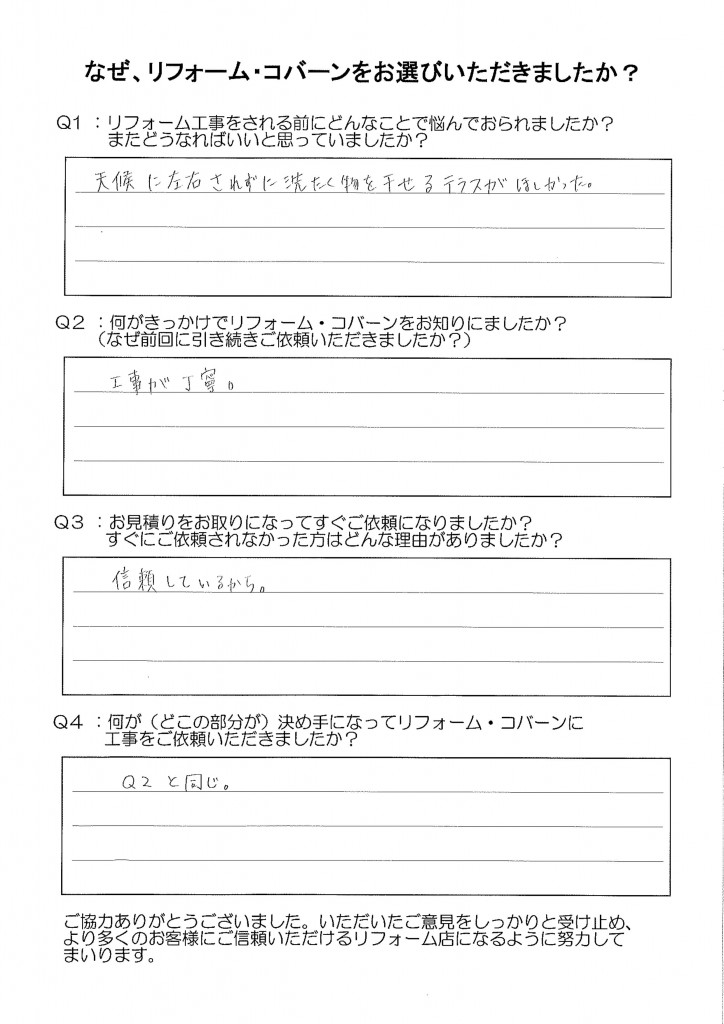 なぜ、リフォーム・コバーンをお選びいただきましたか？
Q１：リフォーム工事をされる前にどんなことで悩んでおられましたか？
またどうなればいいと思っていましたか？
天候に左右されずに洗たく物を干せるテラスがほしかった。
Q２：何がきっかけでリフォーム・コバーンをお知りにましたか？
（なぜ前回に引き続きご依頼いただきましたか？）
工事が丁寧。
Q３：お見積りをお取りになってすぐご依頼になりましたか？
すぐにご依頼されなかった方はどんな理由がありましたか？
信頼しているから。
Q４：何が（どこの部分が）決め手になってリフォーム・コバーンに
工事をご依頼いただきましたか？
Q2と同じ。
ご協力ありがとうございました。いただいたご意見をしっかりと受け止め、
より多くのお客様にご信頼いただけるリフォーム店になるように努力して
まいります。